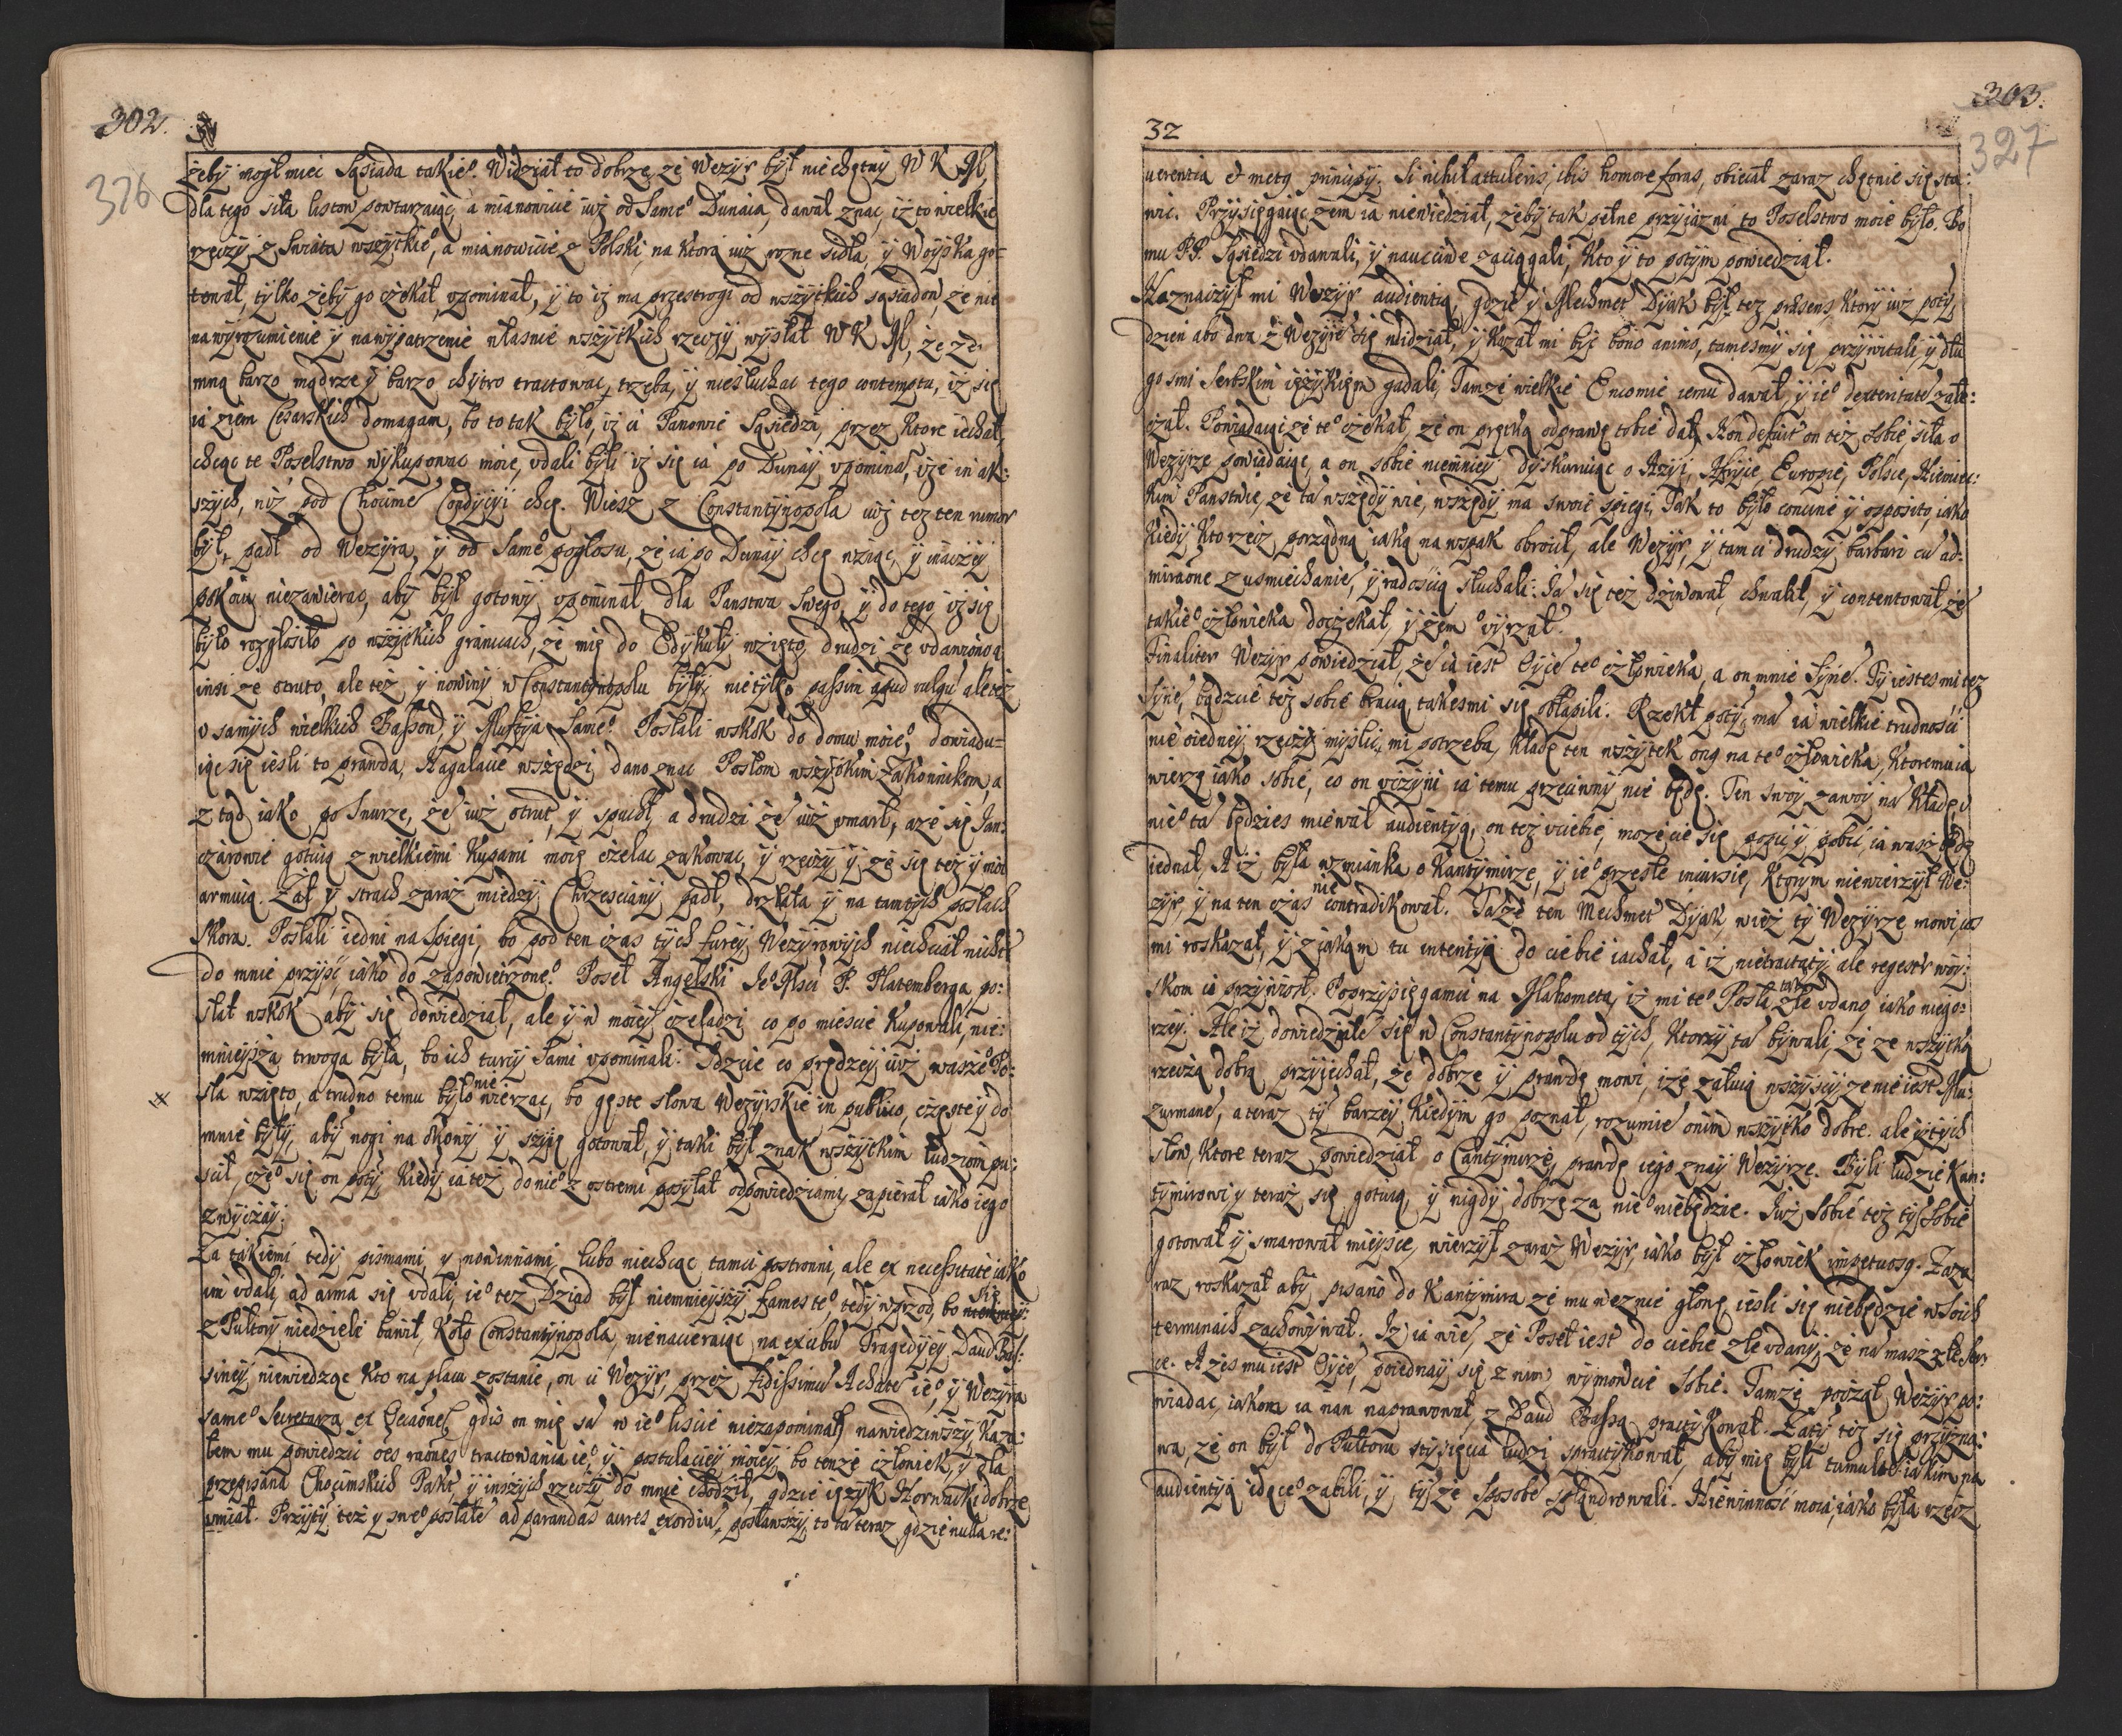 302.
326
żeby mogł miec Sąsiada takie°. Widział to dobrze, ze Wezyr był niechętny W K M,
dla tego siła listow powtarzaiąc, a mianowicie iuż od Same° Dunaia, dawał znac, iż to wielkie
rzeczy z Swiata wszytkie°, a mianowicie z Polski, na ktorą iuż rozne sidła, y Woyska go-
tował, tylko zeby go czekał, vpominał, y to iz ma przestrogi od wszytkich sąsiadow, ze nie
na wyrozumienie y na wypatrzenie własnie wszytkich rzeczy wysłał W K M, ze ze
mną barzo mądrze y barzo chytro tractowac, trzeba, y niesłuchac tego contemptu, iz się
ia ziem Cesarskich domagam, bo to tak było, iz ci Panowie Sąsiedzi, przez ktore iechał,
chcąc te Poselstwo wykupowac moie, vdali byli iz się ia po Dunay vpominał, ize in ak:
szych, niz pod Chocime Condycyi chcę. Wiesz z Constantynopola iuż tez ten rumor
był, padł od Wezyra, y od Same° pogłosu, ze ia po Dunay chcę wziąc, y inaczey
pokoiu niezawierac, aby był gotowy vpominał dla Panstwa Swego, y do tego iz się
było rozgłosiło po wszytkich granicach, ze mię do Edykuły wzięto, drudzi ze vdawiono a
insi ze otruto, ale tez y nowiny w Constantynopolu były, nietylko passim apud vulgū ale tez
v samych wielkich Bassow, y Muftya Same°. Posłali wskok do domu moie°, dowiadu-
iąc się iesli to prawda, Ragalaue wszędzi dano znac Posłom wszytkim Zakonnikom, a
z tąd iako po Snurze, że iuż otrut, y spuchł, a drudzi że iuż vmarł, aze się Jan:
czarowie gotuią z wielkiemi Kupami moię czeladz zakowac, y rzeczy y ze się tez y moi
armuią. Zał y strach zaraz miedzy Chrzesciany padł, drzała y na tamtych posłach
skora. Posłali iedni na Spiegi, bo pod ten czas tych furiy Wezyrowych niechciał nicht
do mnie przyiść, iako do zapowietrzone°. Poseł Angelski Je° Mści P. Platemberga po:
słał wskok aby się dowiedział, ale y w moiey czeladzi co po miescie Kupowali, nie:
mnieysza trwoga była, bo ich turcy Sami vpominali. Idzcie co prędzey iuż wasze° Po:
sła wzięto, a trudno temu było nie wierzac, bo gęste słowa Wezyrskie in publico, częste y do
mnie były, aby nogi na okowy y szyię gotował, y taki był znak wszytkim ludziom pu:
scił, cze° się on poty kiedy ia tez do nie° z ostremi posyłał odpowiedziami, zapierał iako iego
zwyczay.
Za takiemi tedy pismami, y nowinami, lubo niechcąc tamci postronni, ale ex necessitate iako
im vdali, ad arma się vdali, ie° tez Dziad był niemnieyszy fames te°, tedy wprzod, bo się
z Pułtory niedzieli bawił, koło Constantynopola, nienacieraiąc na exitū Tragediyey Daud Bas:
siney niewiedząc kto na placu zostanie, on ci Wezyr, przez fidissimū Achate ie°, y Wezyra
same° Secretarza ex Grāones, gdis on mię sā w ie° liscie niezapominał nawiedziwszy, Kaza:
łem mu powiedzic oēs raōnes tractowania ie°, y postulaciey moiey, bo tenze człowiek, y dla
przepisāna Chocimskich Pakt, y inszych rzeczy do mnie chodził, gdzie ięzyk Horwacki dobrze
vmiał. Przyty tez y swe° posłałē ad parandas aures exordiū, posławszy, to tā teraz gdzie nulla re:
303.
327
32
uerentia & metq principij. Si nihil attuleris, ibis homore foras, obiecał zaraz chętnie się sta:
wic. Przysięgaiąc żem ia niewiedział, żeby tak pełne przyiazni to Poselstwo moie było. Bo
mu PP. Sąsiedzi vdawali, y nauciwe zaciągali, kto y to potym powiedział.
Naznaczył mi Wezyr audientią, gdzie y Mechmet Dyak był tez praesens, ktory iuż poty
dzień abo dwa z Wezyrē się widział, y kazał mi byc bono animo, tamesmy się przywitali, y dłu
go smi Serbskim ięzykiem gadali, Tamze wielkie Encomie iemu dawał, y ie° dexteritatē zale:
czał. Powiadaąc że te° czekał, ze on pręką odprawę tobie dał, Non defuit on też sobie siła o
Wezyrze powiadaiąc, a on sobie niemniey dyskuruiąc o Azyi, Afryce, Europie, Polsce, Niemiec:
kim Panstwie, ze tā wszędy nie, wszędy ma swoie spiegi, Tak to było concinē y opposito, iako
kiedy kto rzecz porządną iaką na wspak obrocił, ale Wezyr, y tam ci drudzy barbari cū ad:
miraōne z usmiechanie, y radością słuchali. Ia się też dziwował, chwalił, y contentował, że
takie° człowieka doczekał, y zem° vyrzał.
Finaliter Wezyr powiedział, że ia iest Oyce te° człowieka, a on mnie Syne. Ty iestes mi tez
Syne, bądzcie tez sobie bracią, takesmi się obłapili. Rzekł poty, mā ia wielkie trudnosci
nie o iedney rzeczy myslic mi potrzeba, kładę ten wszytek onq na te° człowieka, ktoremu ia
wierzę iako sobie, co on vczyni ia temu przeciwny nie będę. Ten swoy zawoy nā kładę, v
nie° tā będzies miewał audientyą, on tez v ciebie, mozecie się popic y pobic, ia wasz sędz
iednał. A iż była wzmianka o Kantymirze, y ie° przeszłe incursie, ktorym niewierzył We:
zyr, y na ten czas nie contradikował. Tāze ten Mechmet Dyak, wiez ty Wezyrze mowi, cos
mi roskazał, y z iakąm tu intentyą do ciebie iachał, a iż nietractaty, ale regestr woy:
skom ia przyniosł. Poprzysięgamci na Mahometa, iż mi te° Posła tak zle vdano, iako niego:
rzey. Ale iz dowiedziałē się w Constantynopolu od tych, ktorzy tā bywali, że ze wszytką
rzeczą dobrą przyiechał, że dobrze y prawdę mowi, ize załuią wszyscy, ze nie iest Mu:
zurmane, a teraz ty barzey kiedym go poznał, rozumie onim wszytko dobre. ale y tych
słow, ktore teraz powiedział o Cantymirze, prawdę iego znay Wezyrze. Byli ludzie Kan:
tymirowi y teraz się gotuią, y nigdy dobrze za nie° niebędzie. Juz sobie tez tyż sobie
gotował y smarował mieysce, wierzył zaraz Wezyr, iako był człowiek impetuosq. Zara
raz roskazał aby pisano do Kantymira ze mu wezmie głowę, iesli się niebędzie w swoich
terminach zachowywał. Iz ia wiē, ze Poseł iest do ciebie zle vdany, ze nā masz złe ser
ce. A zes mu iest Oyce, poiednay się z nim wymowcie sobie. Tamze począł Wezyr po:
wiadac, iakom ia nan naprawował, z Daud Bassą practykował. Zaty tez się przyzna:
wa, ze on był do Pułtora stysięcia ludzi spractykował, aby mię byli tumultē iakim na
audientyą idące° zabili, y tyżē sposobē splądrowali. Nieninnosc moia, iako była rzecz